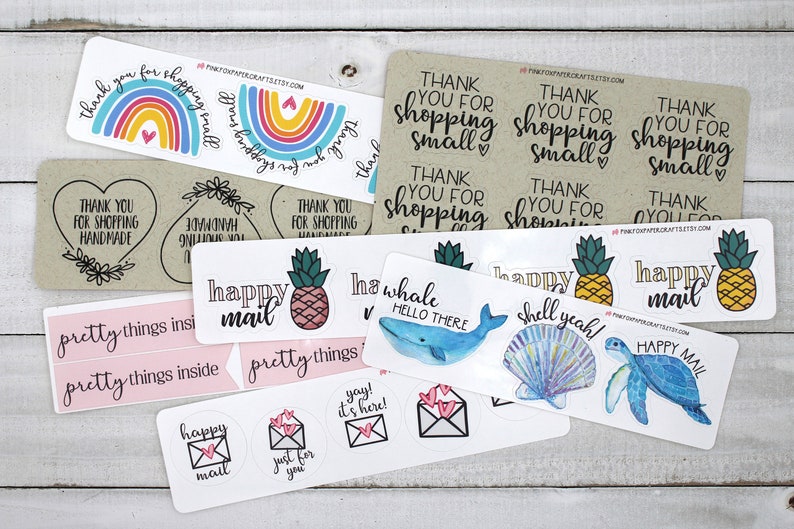 PINKFOXPAPERCRAFTS.ETSY.COM
thank you for shopping small
thank you for shopping small
thank y
PINKFOXPAPERCRAFTS.ETSY.COM
THANK
YOU FOR
shopping
small
THANK
YOU FOR
shopping
small
THANK
YOU FOR
shopping
small
THANK
YOU FOR
shopping
THANK
YOU FOR
shopping
THANK
YOU FOR
shopping
THANK YOU
FOR SHOPPING
HANDMADE
FOR SHOPPING
HANDMADE
THANK YOU
FOR SHOPPING
HANDMADE
PINKFOXPAPERCRAFTS.ETSY.COM
happy
mail
happy
happy
mail
pretty things inside
pretty things inside
pretty things inside
PINKFOXPAPERCRAFTS.ETSY.COM
whale
HELLO THERE
shell yeah!
HAPPY MAIL
happy
mail
just for
you
yay!
it's here!